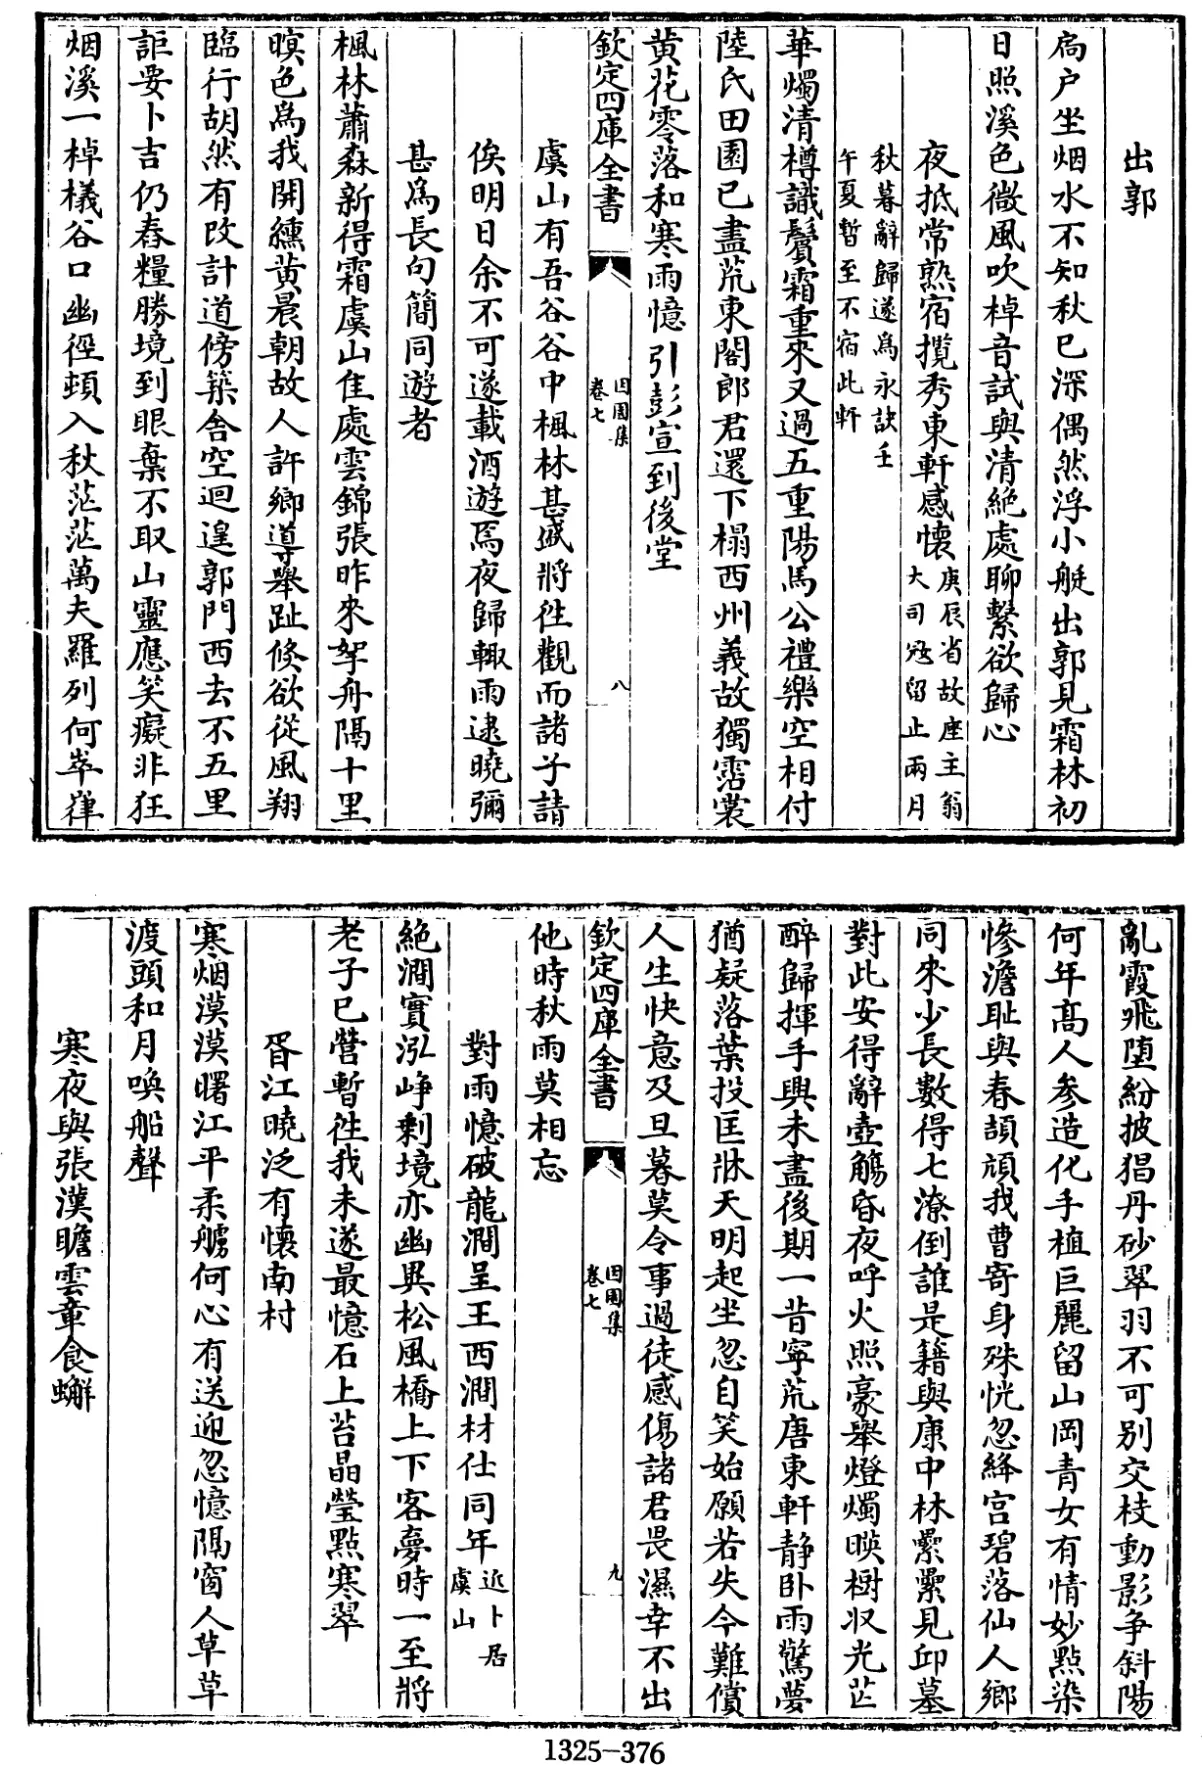 出郭
扃户坐烟水不知秋已深偶然浮小艇出郭見霜林初
日照溪色微風吹棹音試與清絶處聊繫欲歸心
夜抵常熟宿攬秀東軒感懷庚辰省故座主翁
大司宼留止兩月
秋暮辭歸遂爲永訣壬
午夏暫至不宿此軒
華燭清樽識鬢霜重來又過五重陽馬公禮樂空相付
陸氏田園已盡荒東閣郎君還下榻西州義故獨霑裳
黄花零落和寒雨憶引彭宣到後堂
欽定四庫全書
因園集
卷七
八
虞山有吾谷谷中楓林甚盛將徃觀而諸子請
俟明日余不可遂載酒遊焉夜歸輙雨逮曉彌
甚爲長句簡同遊者
楓林蕭森新得霜虞山隹處雲錦張昨來挐舟隔十里
暝色爲我開纁黄晨朝故人許鄉導舉趾倐欲從風翔
臨行胡然有改計道傍築舍空迴遑郭門西去不五里
詎要卜吉仍舂糧勝境到眼棄不取山靈應笑癡非狂
烟溪一棹檥谷口幽徑頓入秋茫茫萬夫羅列何崒嵂
亂霞飛墮紛披猖丹砂翠羽不可别交枝動影争斜陽
何年髙人參造化手植巨麗留山岡青女有情妙點染
慘澹耻與春頡頏我曹寄身殊恍忽絳宫碧落仙人鄉
同來少長數得七潦倒誰是籍與康中林纍纍見邱墓
對此安得辭壺觴昏夜呼火照豪舉燈燭暎樹收光芒
醉歸揮手興未盡後期一昔寧荒唐東軒静卧雨驚夢
猶疑落葉投匡牀天明起坐忽自笑始願若失今難償
人生快意及旦暮莫令事過徒感傷諸君畏濕幸不出
欽定四庫全書
因園集
卷七
九
他時秋雨莫相忘
對雨憶破龍澗呈王西澗材仕同年近卜居
虞山
絶澗實泓崢剩境亦幽異松風橋上下客夢時一至將
老子已營暫徃我未遂最憶石上苔晶瑩點寒翠
胥江曉泛有懷南村
寒烟漠漠曙江平柔艣何心有送迎忽憶隔窗人草草
渡頭和月喚船聲
寒夜與張漢瞻雲章食蠏
1325-376